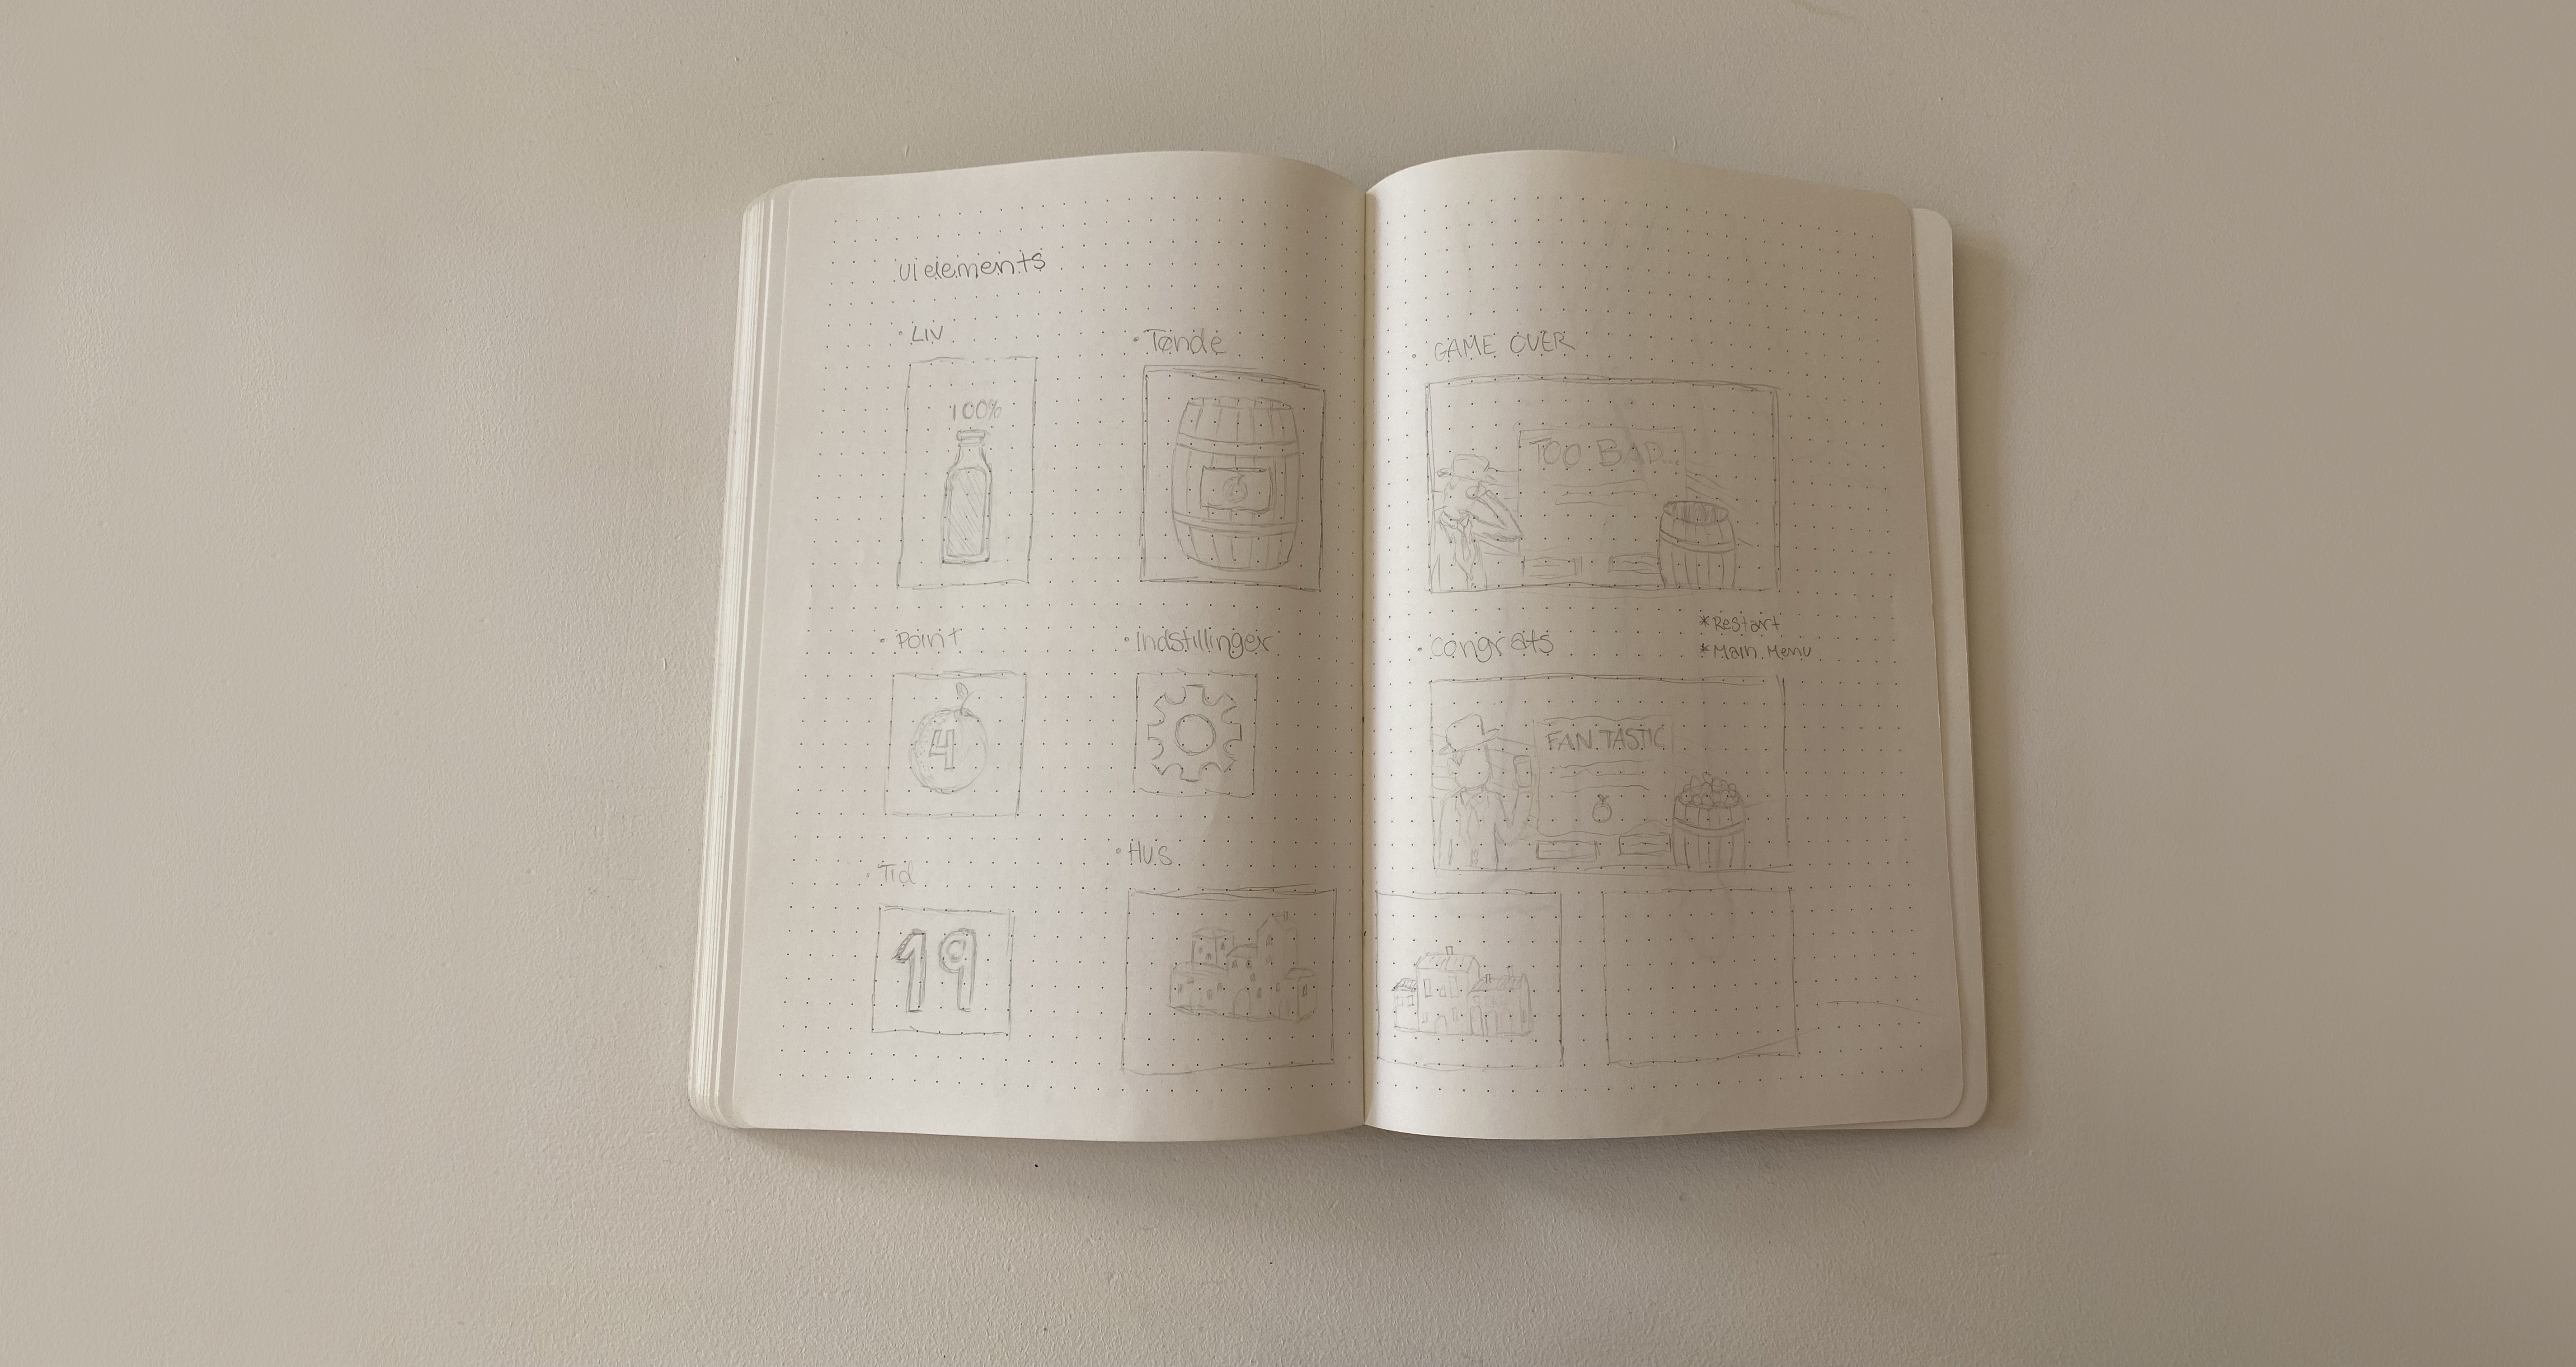 UI elements
• LIV
100%
• Tønde
• Point
4
• indstillinger
• Tid
19
• Hus
• GAME OVER
TOO BAD...
* Restart
* Main Menu
• congrats
FANTASTIC